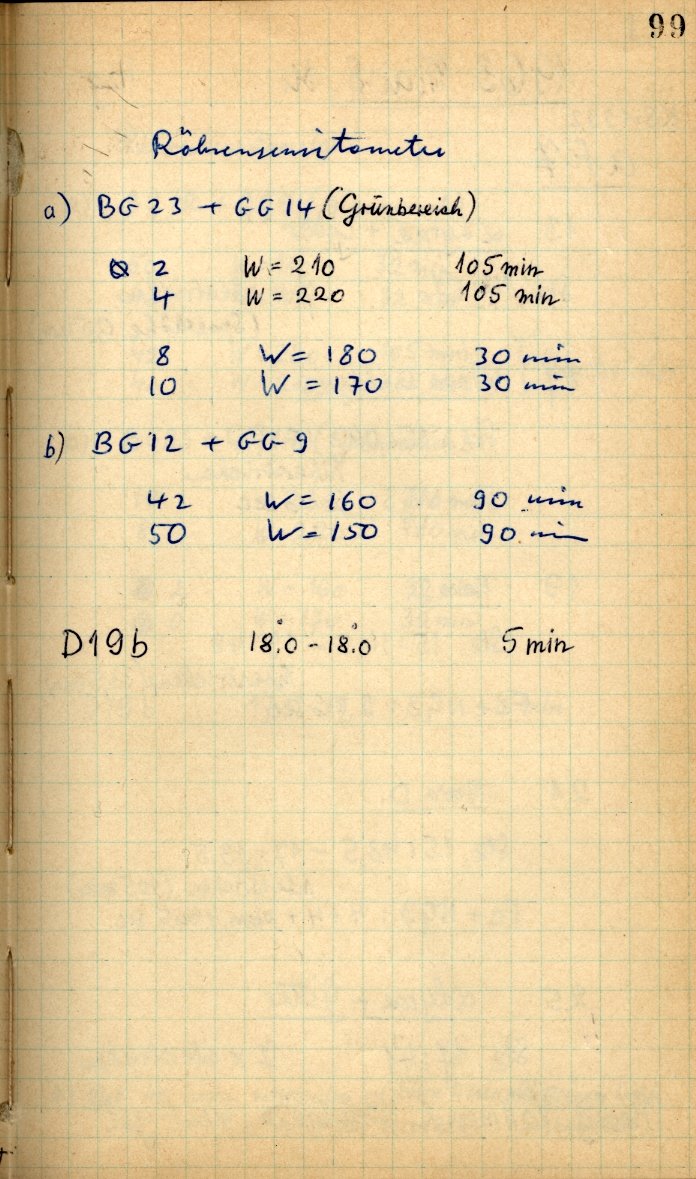 99
Röhrensensitometer
a) BG 23 + GG 14 (Grünbereich)
2 W = 210 105 min
4 W = 220 105 min
8 W = 180 30 min
10 W = 170 30 min
b) BG 12 + GG 9
42 W = 160 90 min
50 W = 150 90 min
D19b 18°.0 - 18°.0 5 min